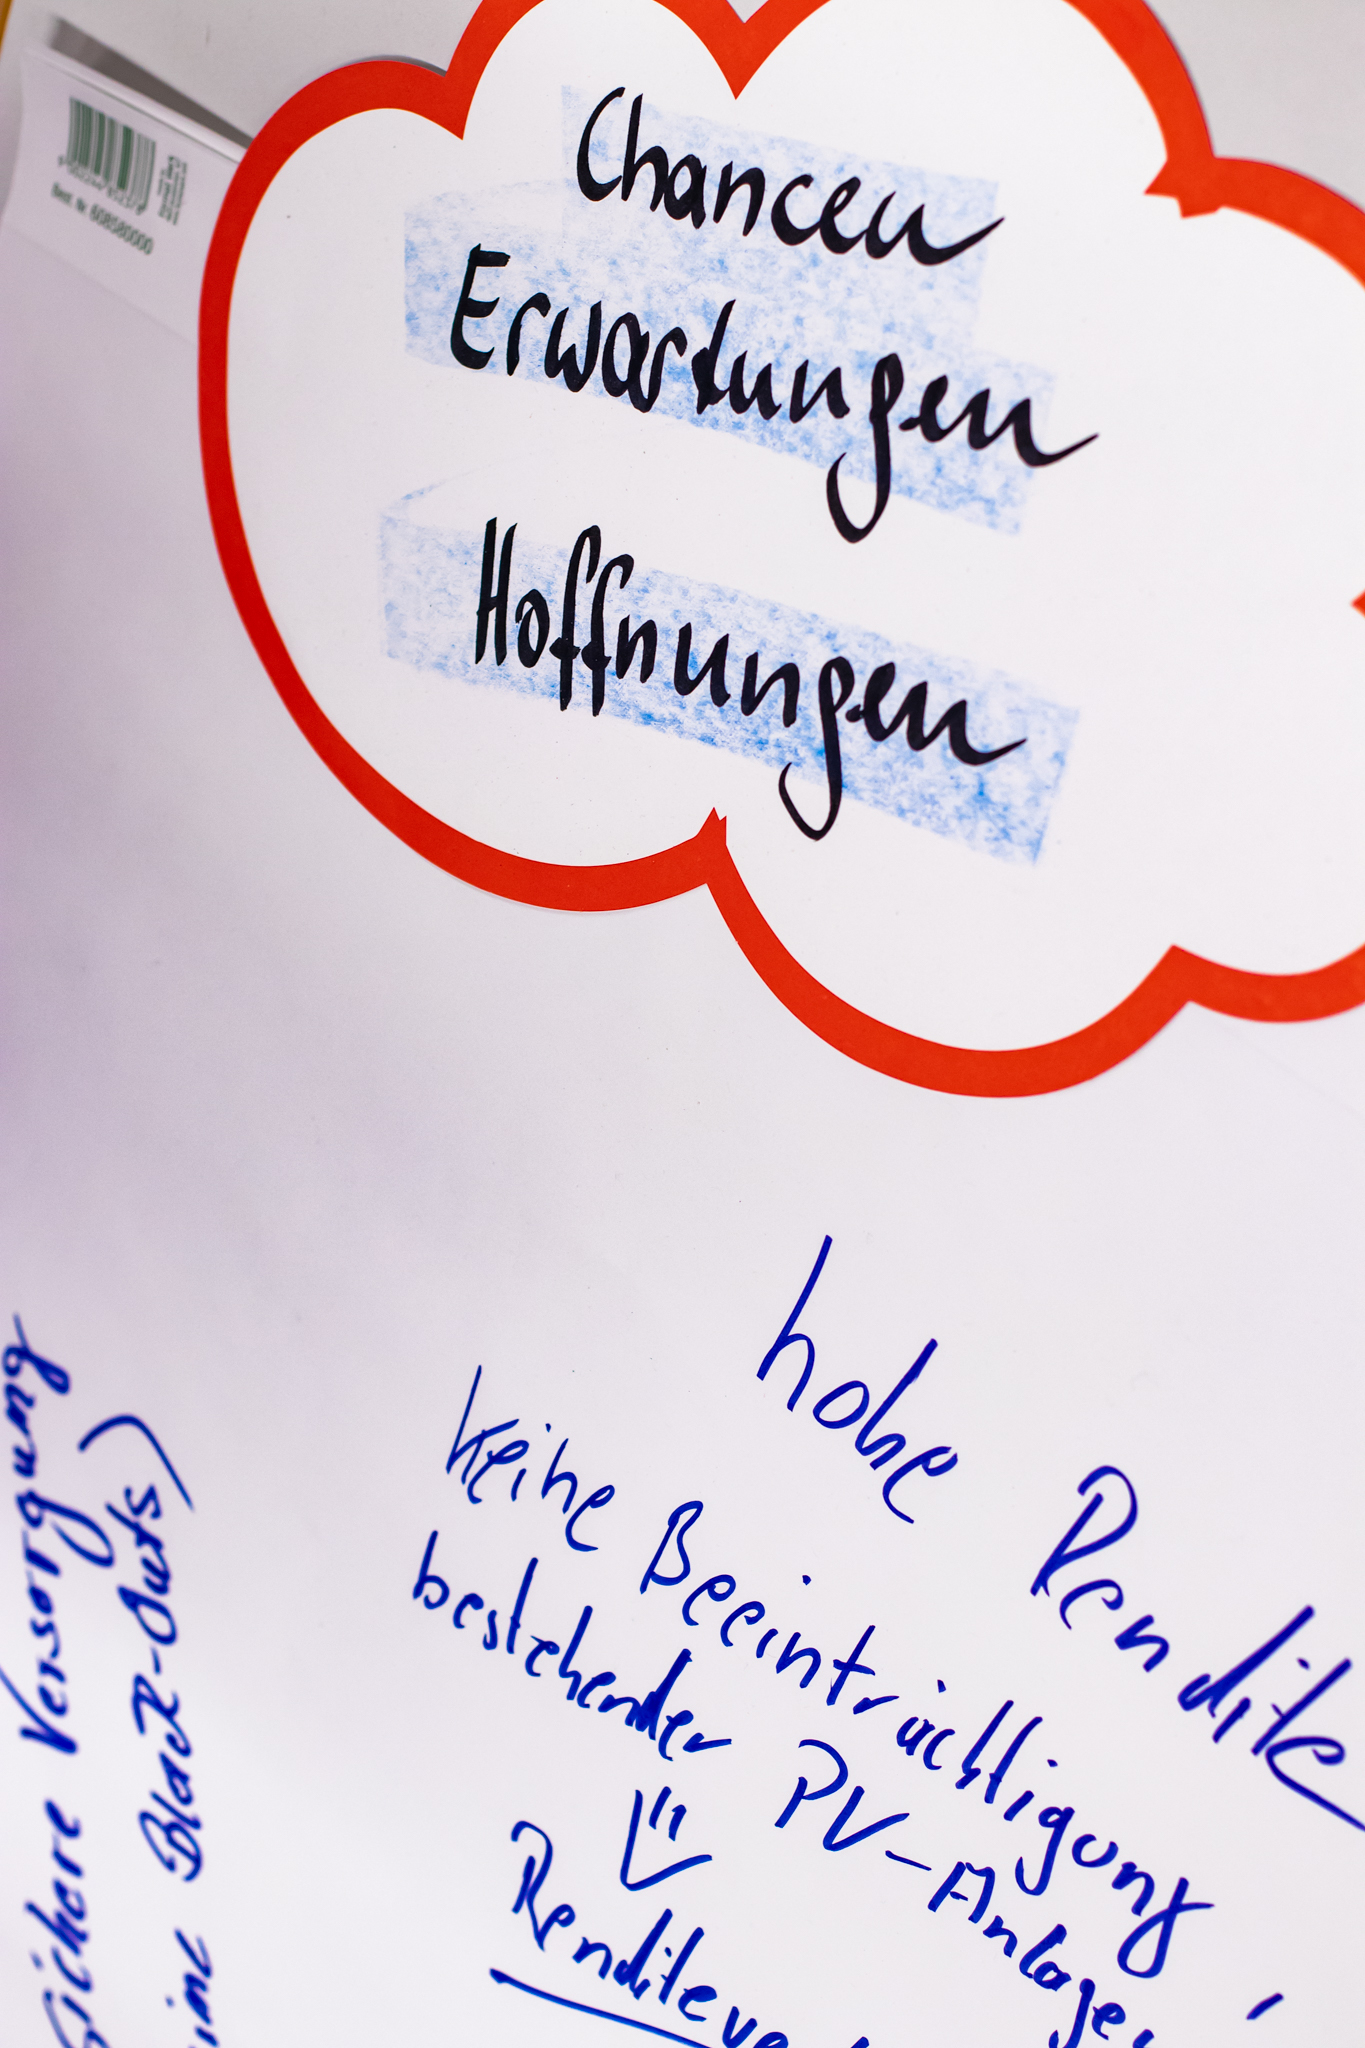 Best. Nr. 608580000
Chancen
Erwartungen
Hoffnungen
hohe Rendite
keine Beeinträchtigung
bestehender PV-Anlagen
⇓
Renditeve
sichere Versorgung
Black-Outs)